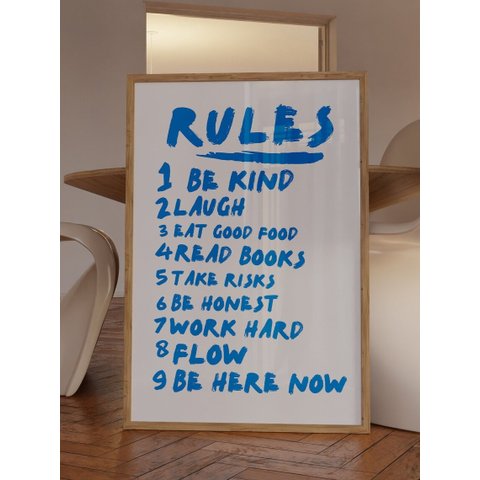 RULES
1 BE KIND
2 LAUGH
3 EAT GOOD FOOD
4 READ BOOKS
5 TAKE RISKS
6 BE HONEST
7 WORK HARD
8 FLOW
9 BE HERE NOW